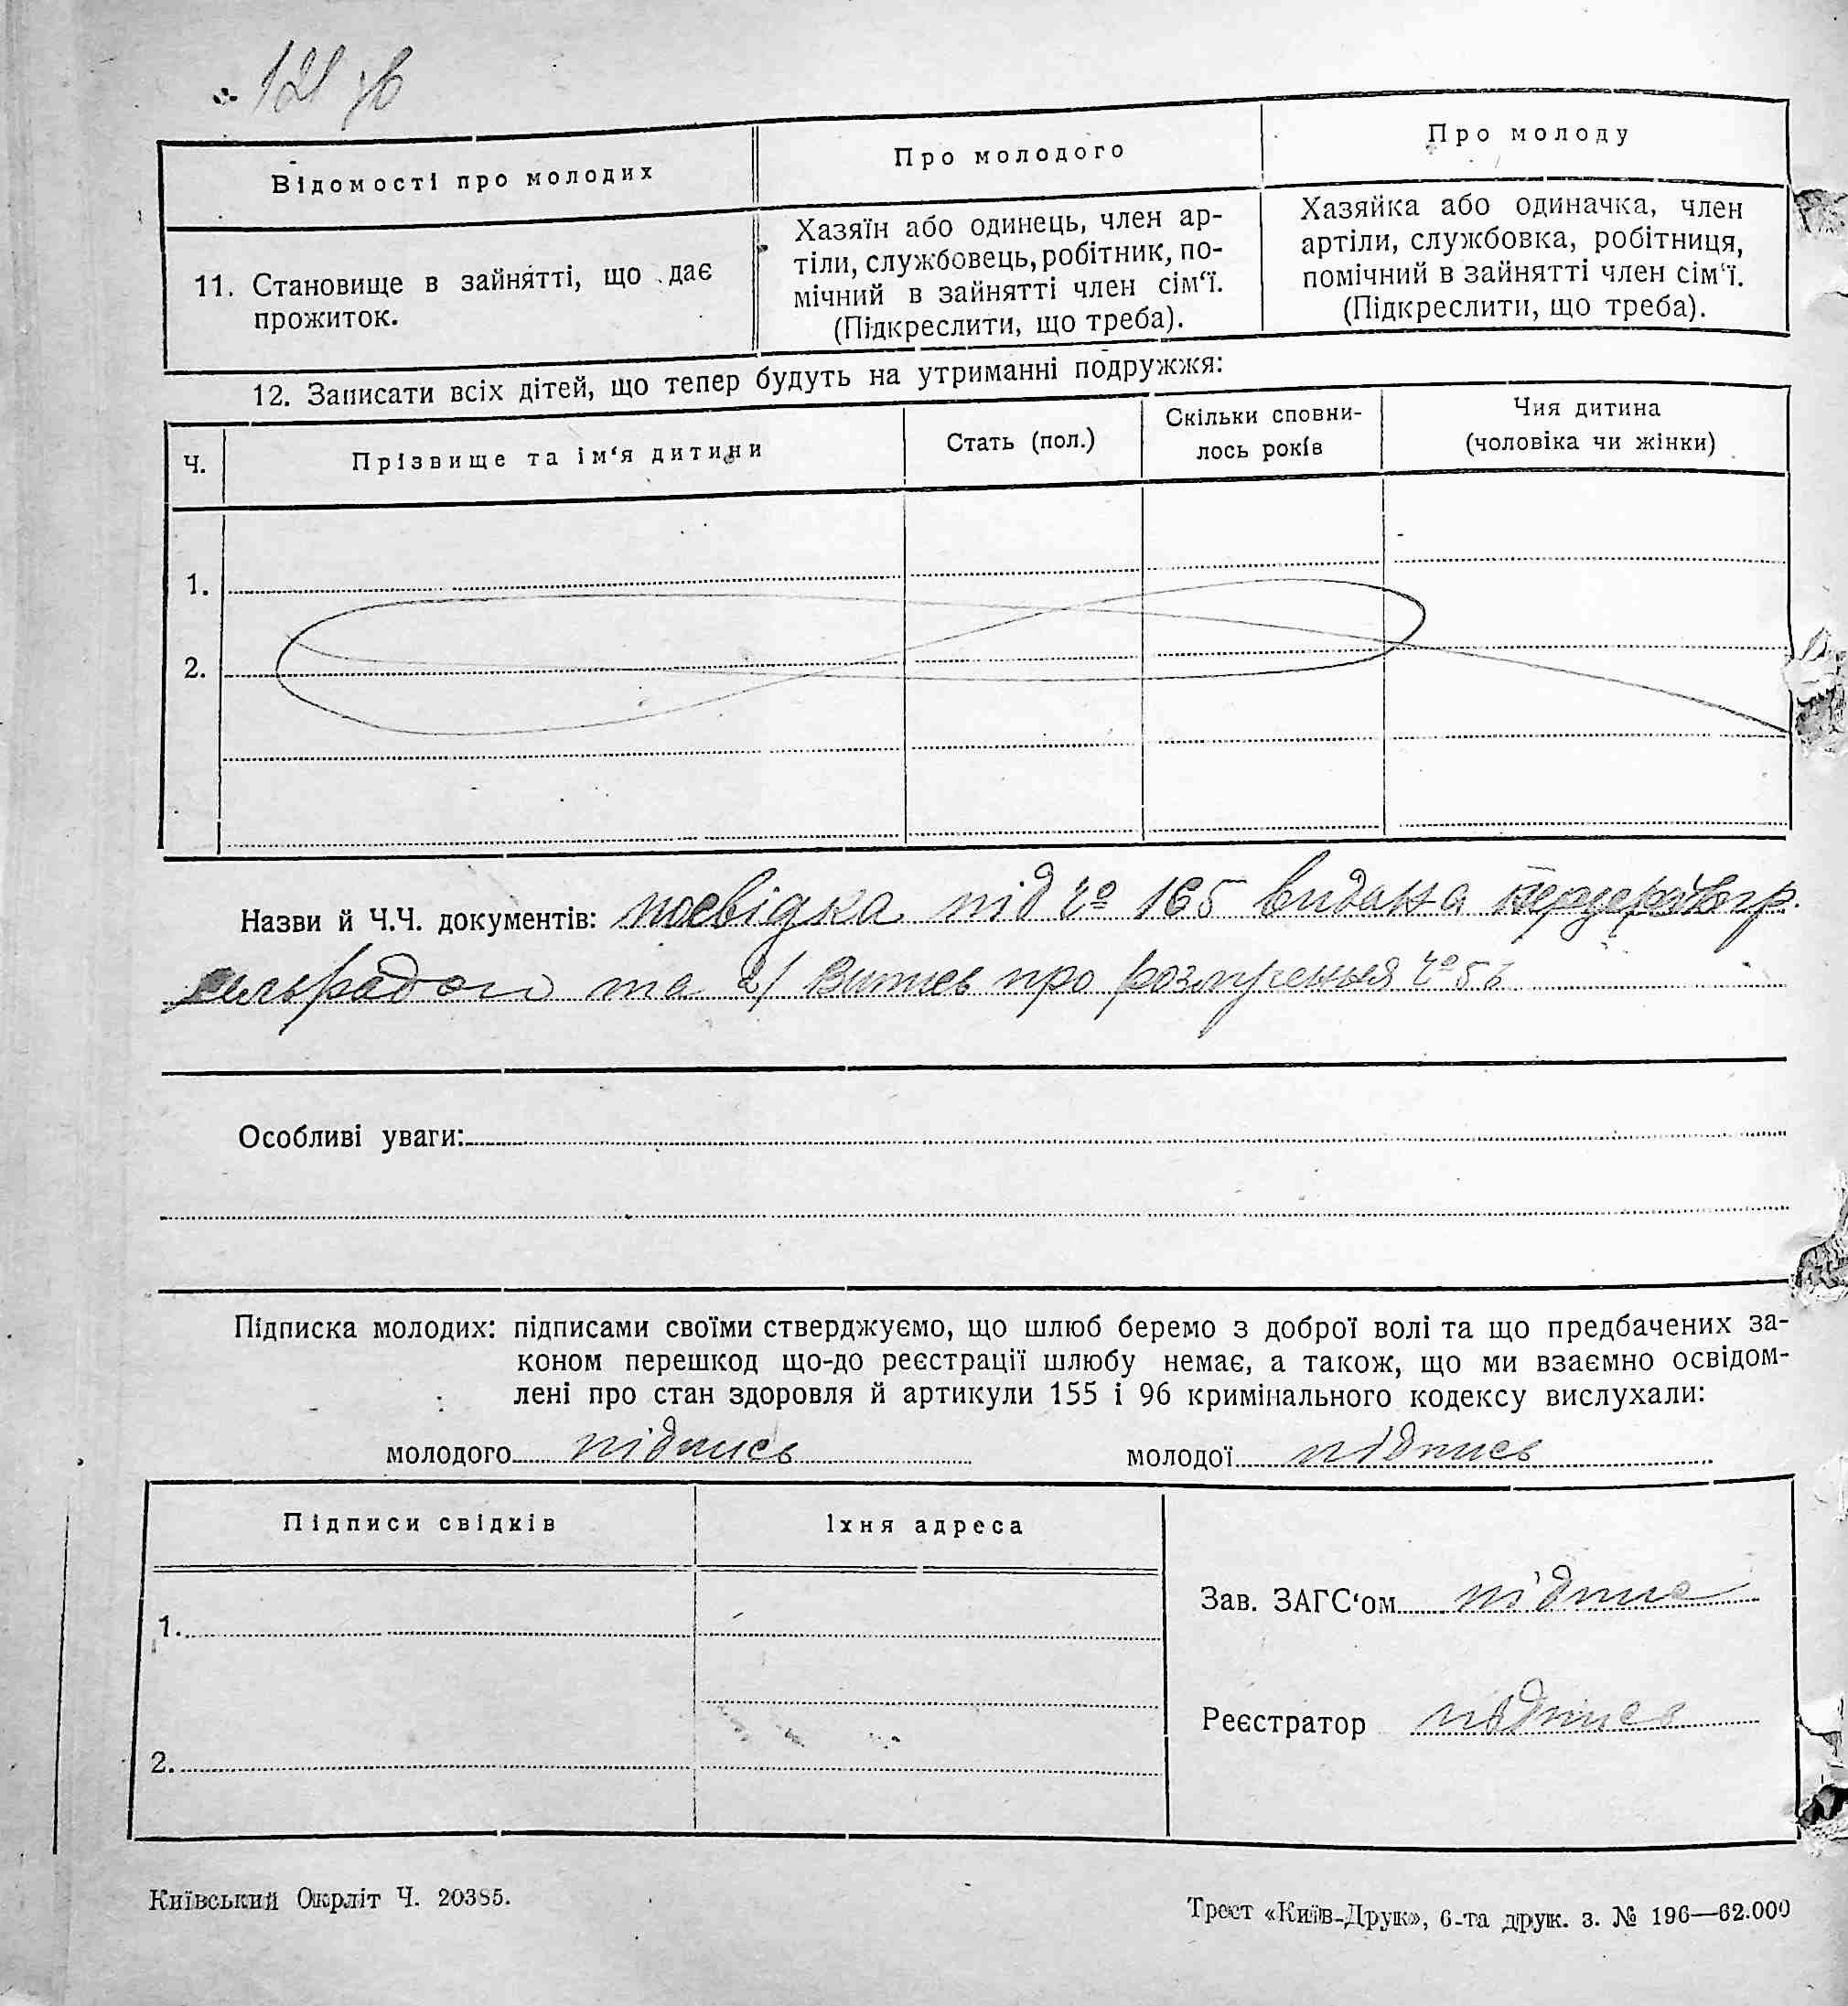 121 зв
Відомості про молодих
Про молодого
Про молоду
11. Становище в зайнятті, що дає
прожиток.
Хазяїн або одинець, член ар-
тіли, службовець, робітник, по-
мічний в зайнятті член сім‘ї.
(Підкреслити, що треба).
Хазяйка або одиначка, член
артіли, службовка, робітниця,
помічний в зайнятті член сім‘ї.
(Підкреслити, що треба).
12. Записати всіх дітей, що тепер будуть на утриманні подружжя:
Ч.
Прізвище та ім‘я дитини
Стать (пол.)
Скільки сповни-
лось років
Чия дитина
(чоловіка чи жінки)
1.
2.
Назви й Ч.Ч. документів: посвідка під Ч° 165 видана
сельрадою та 2/ Витяг про розлучення Ч°
Особливі уваги:
Підписка молодих: підписами своїми стверджуємо, що шлюб беремо з доброї волі та що предбачених за-
коном перешкод що-до реєстрації шлюбу немає, а також, що ми взаємно освідом-
лені про стан здоровля й артикули 155 і 96 кримінального кодексу вислухали:
молодого підпись молодої підпись
Підписи свідків
Їхня адреса
1.
2.
Зав. ЗАГС‘ом підпис
Реєстратор підпись
Київський Окрліт Ч. 20385.
Трест «Київ-Друк», 6-та друк. з. № 196—62.000